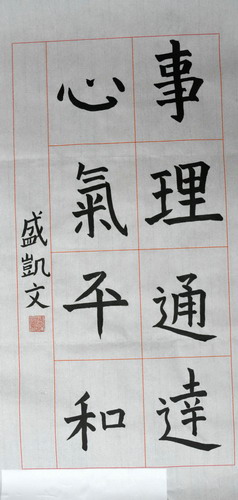 事理通達
心氣平和
盛凱文